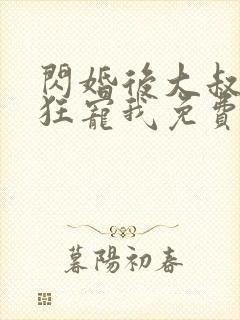 閃婚後大叔
狂寵我免費
暮陽初春